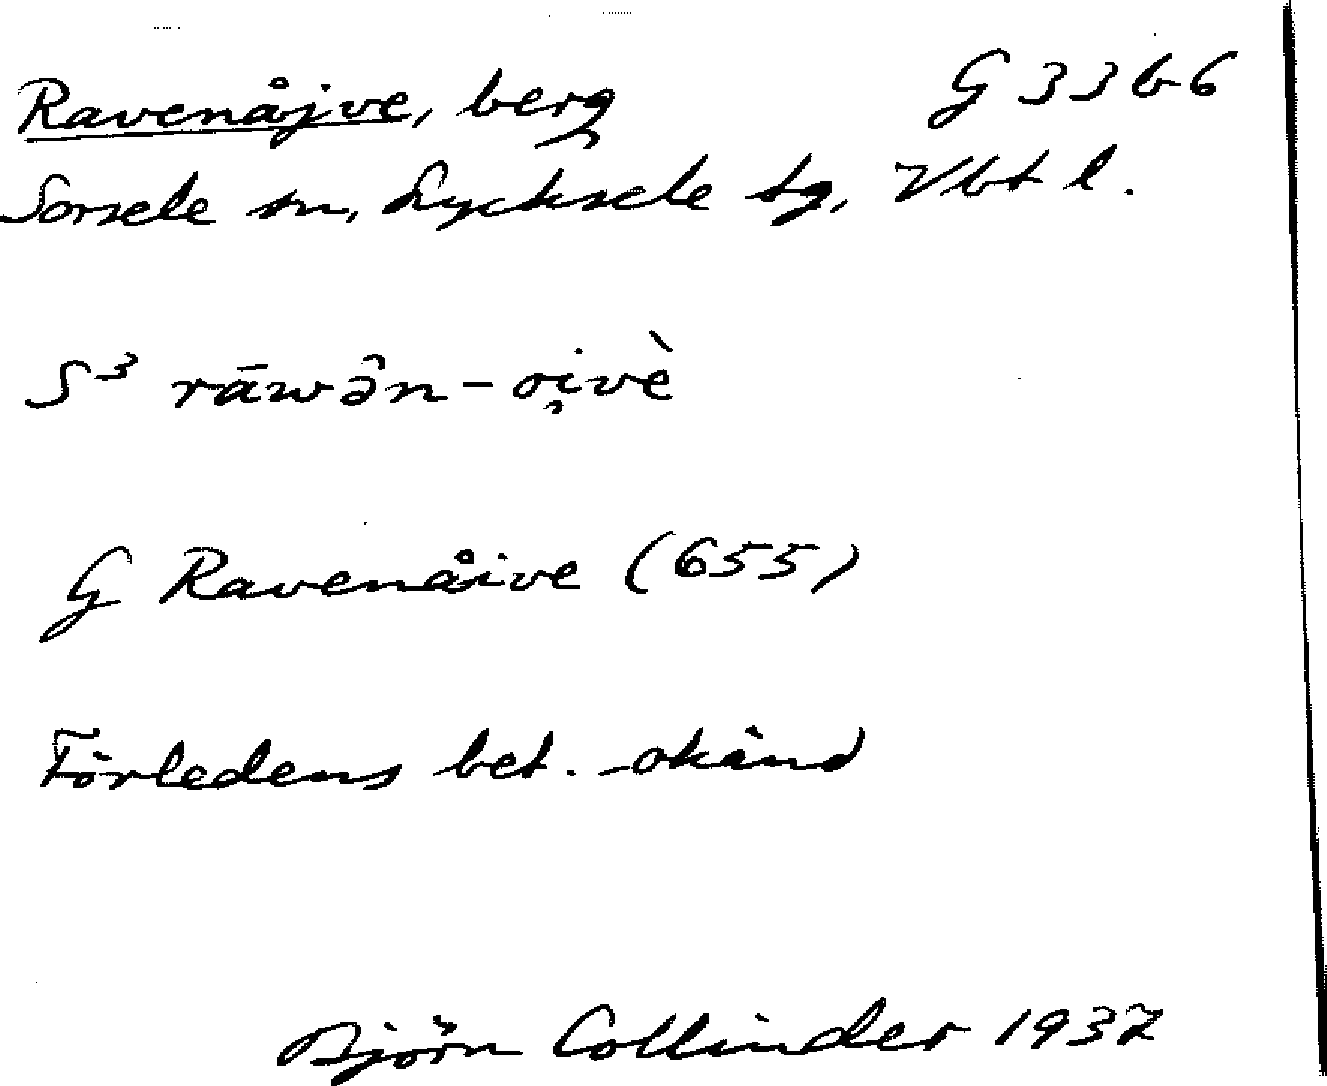 Ravenåjve, berg G 33 b 6
Sorsele sn, Lycksele tg, Vbt l.
S³ rāwə̂n-oi̯vè
G Ravenåive (655)
Förledens bet. okänd
Björn Collinder 1937